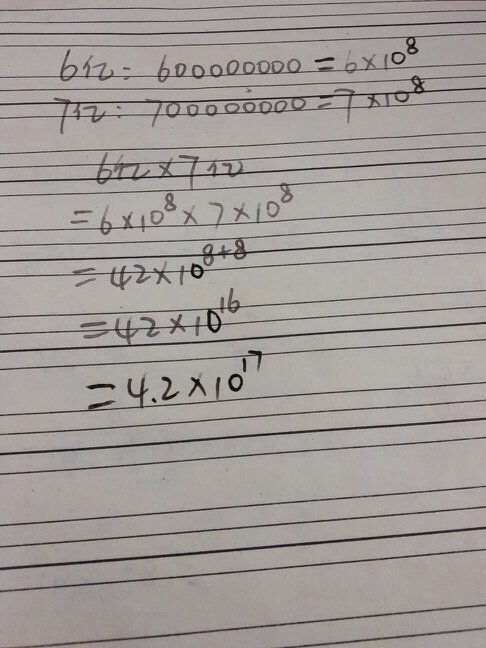 6亿: 600000000=6×10⁸
7亿: 700000000=7×10⁸
6亿×7亿
=6×10⁸×7×10⁸
=42×10⁸⁺⁸
=42×10¹⁶
=4.2×10¹⁷